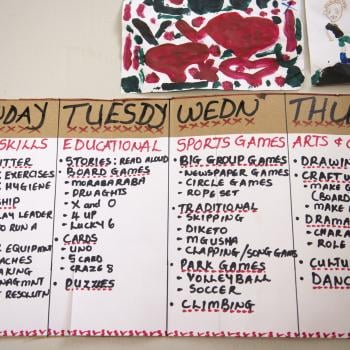 DAY
SKILLS
EXERCISES
HYGIENE
PLAY LEADER
TO RUN A
EQUIPMENT
TUESDY
EDUCATIONAL
• STORIES: READ ALOUD
• BOARD GAMES
- MORABARABA
- DRUAGHTS
- X and O
- 4 UP
- LUCKY 6
• CARDS
- UNO
- 5 CARD
- CRAZE 8
• PUZZLES
WEDN'
SPORTS GAMES
• BIG GROUP GAMES
- NEWSPAPER GAMES
- CIRCLE GAMES
- ROPE SET
• TRADITIONAL
- SKIPPING
- DIKETO
- MGUSHA
- CLAPPING/SONG GAMES
• PARK GAMES
- VOLLEYBALL
- SOCCER
• CLIMBING
THU
ARTS &
• DRAWIN
• CRAFTW
- MAKE
(BOARD
- MAKE
• DRAMA
- CHARA
- ROLE
• CULTU
• DANC